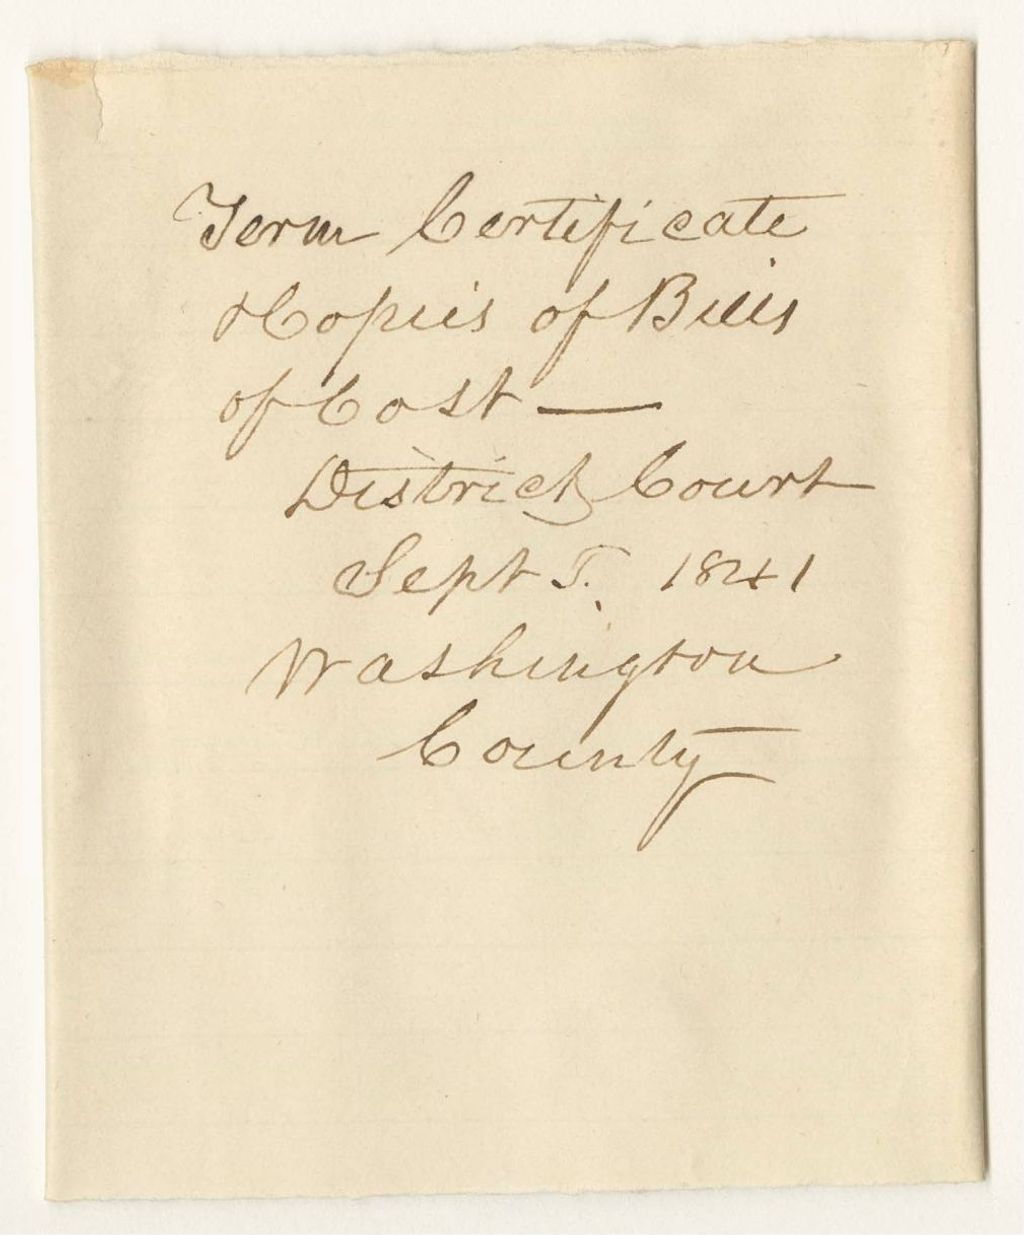 Term Certificate
& Copies of Bills
of Cost —
District Court
Sept T. 1841
Washington
County